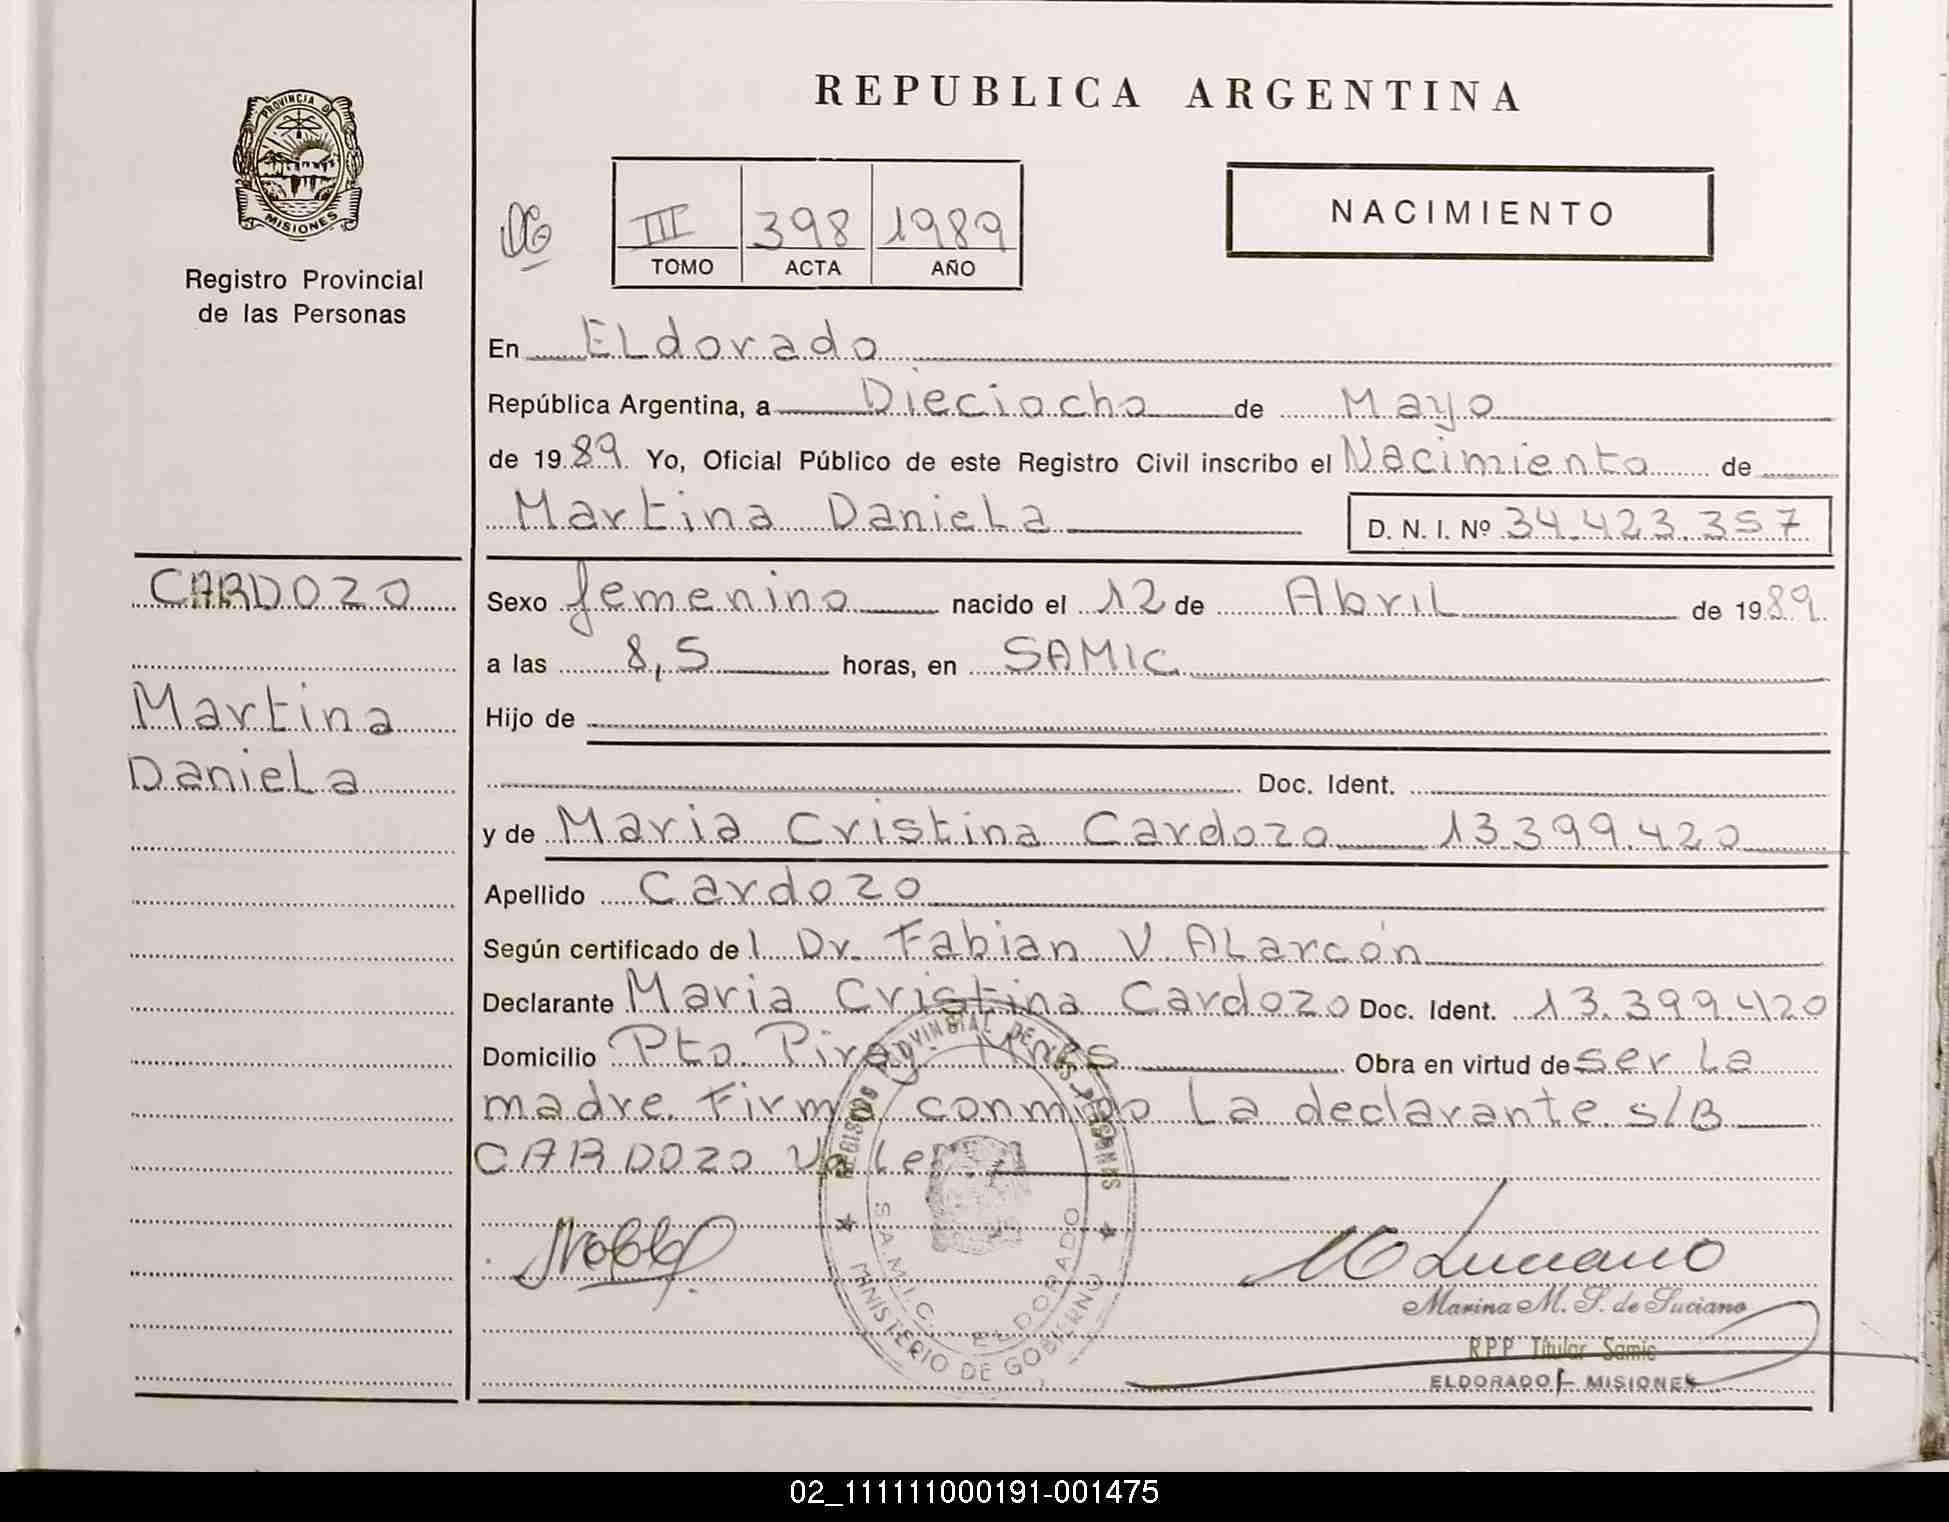 REPUBLICA ARGENTINA
PROVINCIA D
MISIONES
Registro Provincial
de las Personas
III 398 1989
TOMO ACTA AÑO
NACIMIENTO
En ELdorado
República Argentina, a Dieciocho de Mayo
de 1989 Yo, Oficial Público de este Registro Civil inscribo el Nacimiento de
Martina DanieLa D. N. I. Nº 34.423.357
CARDOZO
Martina
DanieLa
Sexo femenino nacido el 12 de Abril de 1989
a las 8,5 horas, en SAMIC
Hijo de
Doc. Ident.
y de Maria Cristina Cardozo 13.399.420
Apellido Cardozo
Según certificado de l Dr. Fabian V. ALarcón
Declarante Maria Cristina Cardozo Doc. Ident. 13.399.420
Domicilio Pto. Piray Mnes Obra en virtud de ser La
madre. Firma conmigo La declarante. s/B
CARDOZO Vale
REGISTRO PROVINCIAL DE LAS PERSONAS
S.A.M.I.C. ELDORADO
MINISTERIO DE GOBIERNO
M Luciano
Marina M. S. de Luciano
RPP Titular Samic
ELDORADO - MISIONES
02_111111000191-001475